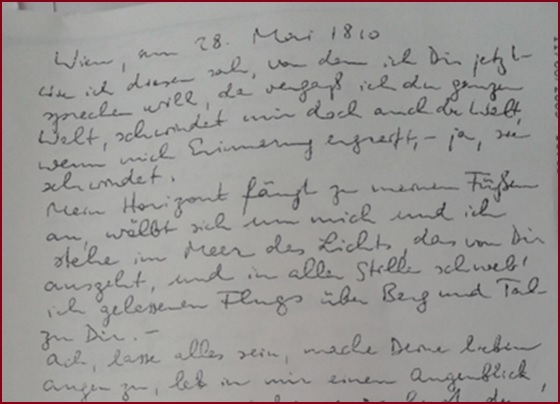 Wien, am 28. Mai 1810
wie ich diesen sah, von dem ich Dir jetzt
sprechen will, da vergaß ich der ganzen
Welt, schwindet mir doch auch die Welt,
wenn mich Erinnerung ergreift, – ja, sie
schwindet.
Mein Horizont fängt zu meinen Füßen
an, wölbt sich um mich und ich
stehe im Meer des Lichts, das von Dir
ausgeht, und in aller Stille schweb'
ich gelassenen Flugs über Berg und Tal
zu Dir. –
Ach, lasse alles sein, mache Deine lieben
Augen zu, leb in mir einen Augenblick,